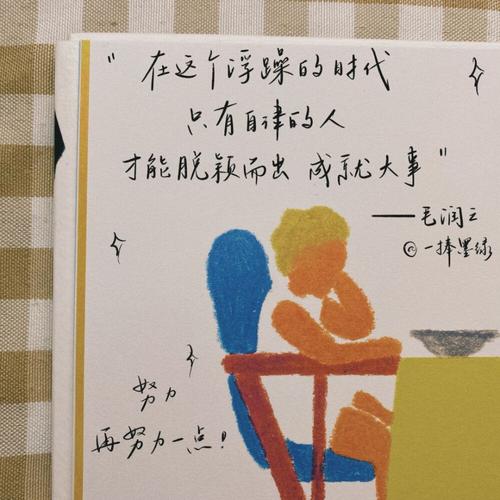 "在这个浮躁的时代
只有自律的人
才能脱颖而出 成就大事"
——毛润之
@一捧墨绿
努力
再努力一点!